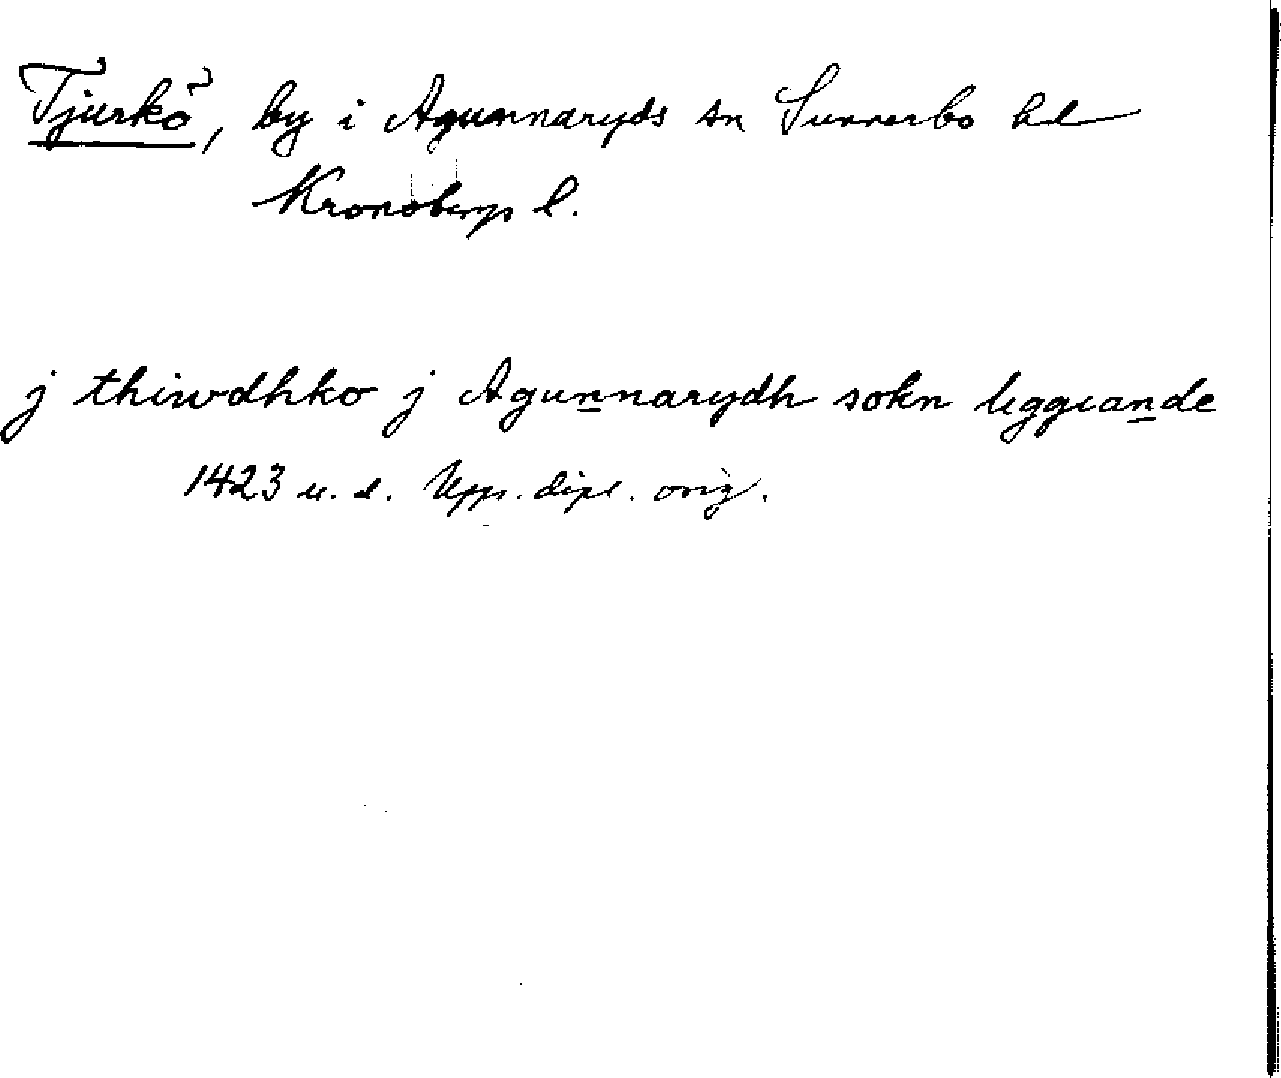 Tjurkö, by i Agunnaryds sn Sunnerbo hd
Kronobergs l.
j thiwdhko j Agunnarydh sokn liggiande
1423 u. d. Upps. dipl. orig.